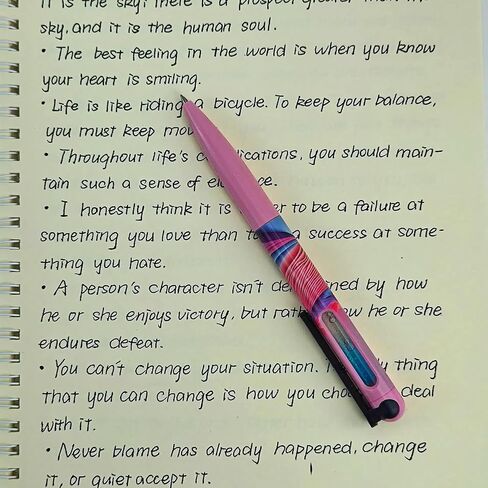 it is the sky; there is a prospect greater than the
sky, and it is the human soul.
• The best feeling in the world is when you know
your heart is smiling.
• Life is like riding a bicycle. To keep your balance,
you must keep
• Throughout life's you should main-
tain such a sense of
• I honestly think it is to be a failure at
something you love than a success at some-
thing you hate.
• A person's character isn't by how
he or she enjoys victory, but he or she
endures defeat.
• You can't change your situation. thing
that you can change is how you deal
with it.
• Never blame has already happened, change
it, or quiet accept it.